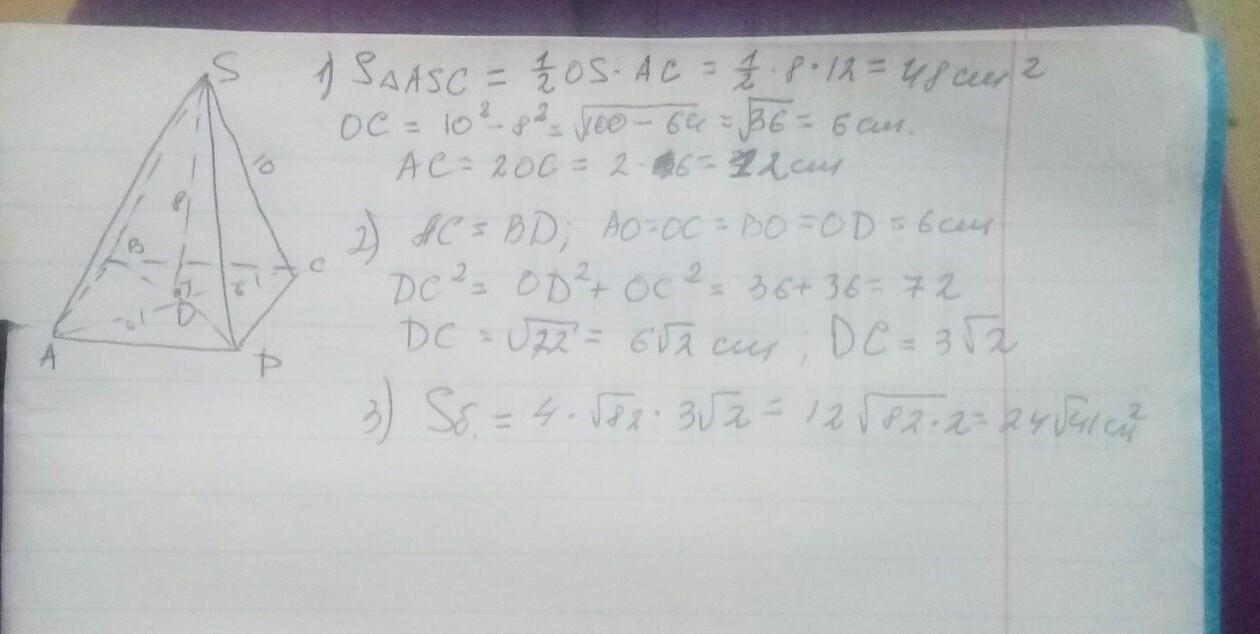 S
10
8
B
C
6
6
O
A
D
1) S△ASC = 1/2 OS · AC = 1/2 · 8 · 12 = 48 см²
OC = 10² - 8² = √100 - 64 = √36 = 6 см.
AC = 2OC = 2 · 6 = 12 см
2) AC = BD; AO = OC = BO = OD = 6 см
DC² = OD² + OC² = 36 + 36 = 72
DC = √72 = 6√2 см; DC = 3√2
3) Sб. = 4 · √82 · 3√2 = 12 √82 · 2 = 24√41 см²